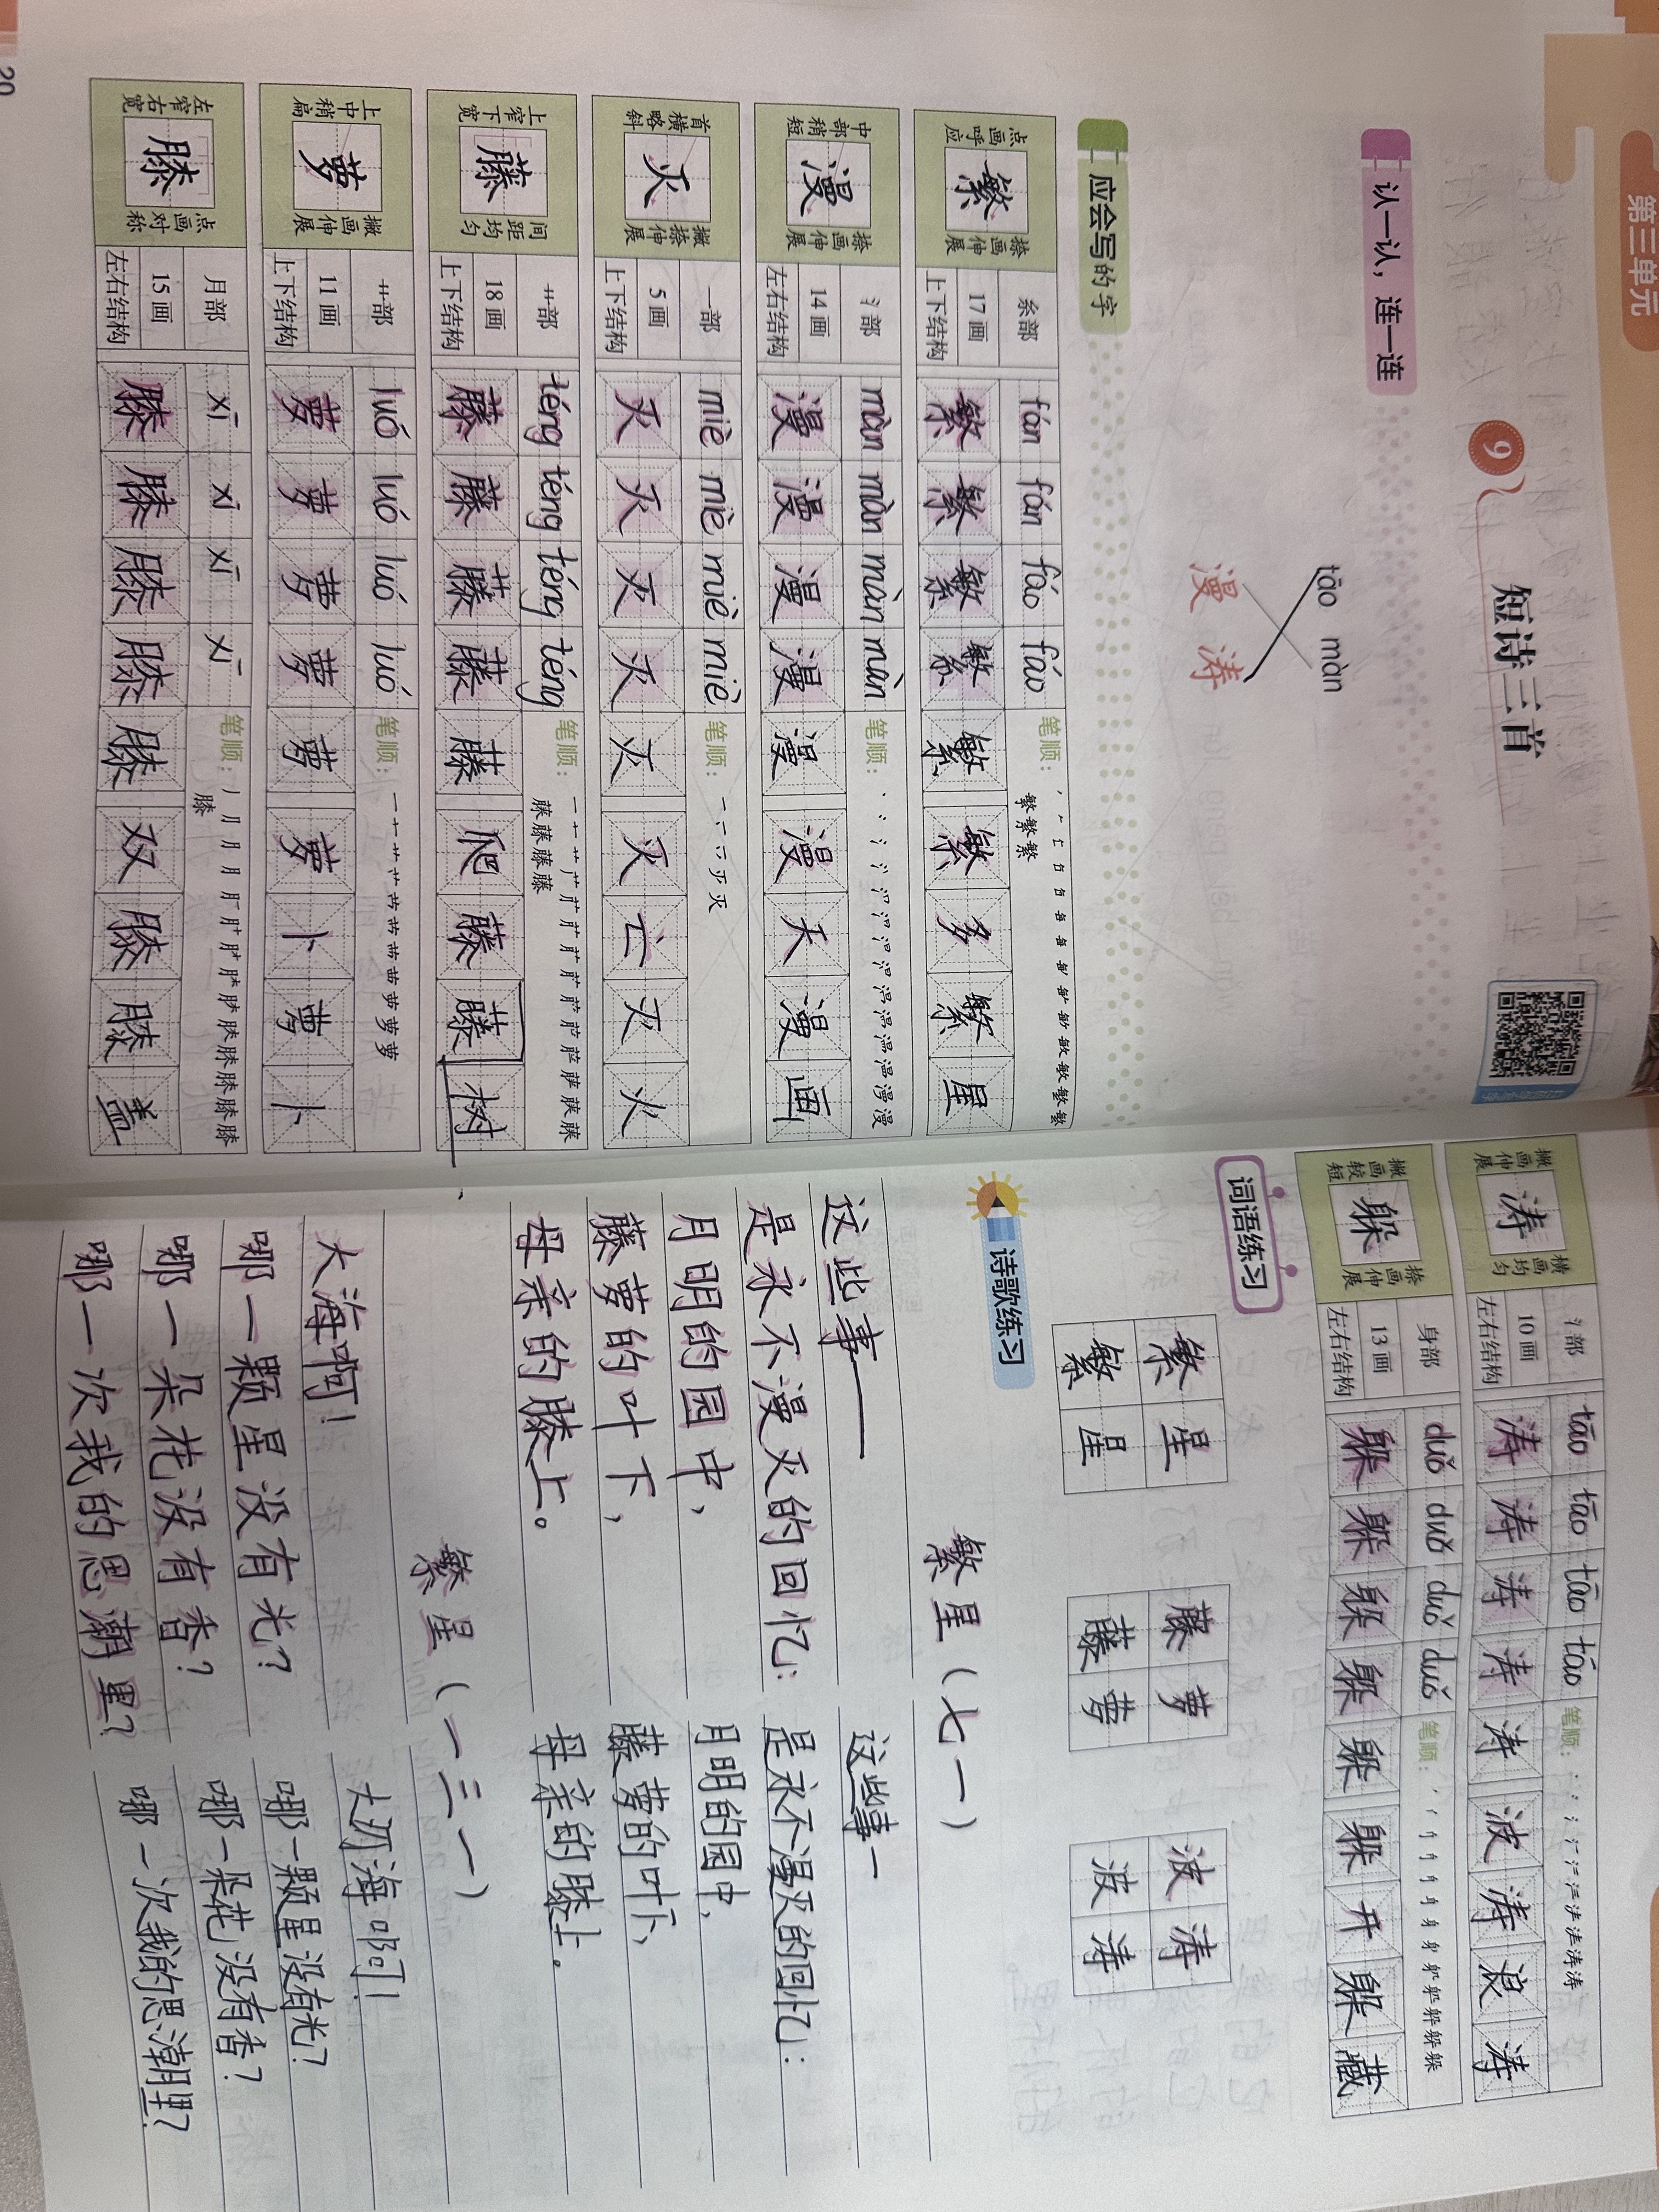 第三单元
9 短诗三首
认一认，连一连
tāo màn
漫 涛
应会写的字
点画呼应 繁 捺画伸展
糸部 fán fán fáo fáo 笔顺：
17 画
上下结构 繁 繁 繁 繁 繁 繁 多 繁 星
中部稍短 漫 捺画伸展
氵部 màn màn màn màn 笔顺：
14 画
左右结构 漫 漫 漫 漫 漫 漫 天 漫 画
首横略斜 灭 撇捺伸展
一部 miè miè miè miè 笔顺：
5 画
上下结构 灭 灭 灭 灭 灭 灭 亡 灭 火
上窄下宽 藤 间距均匀
艹部 téng téng téng téng 笔顺：
18 画
上下结构 藤 藤 藤 藤 藤 爬 藤 藤 树
上中稍扁 萝 撇画伸展
艹部 luó luó luó luó 笔顺：
11 画
上下结构 萝 萝 萝 萝 萝 萝 卜 萝 卜
左窄右宽 膝 点画对称
月部 xī xī xī xī 笔顺：
15 画
左右结构 膝 膝 膝 膝 膝 双 膝 膝 盖
20
撇画伸展 涛 横画均匀
氵部 tāo tāo tāo tāo 笔顺：
10 画
左右结构 涛 涛 涛 涛 涛 波 涛 浪 涛
撇画较短 躲 捺画伸展
身部 duǒ duǒ duǒ duǒ 笔顺：
13 画
左右结构 躲 躲 躲 躲 躲 躲 开 躲 藏
词语练习
繁星 藤萝 波涛
繁星 藤萝 波涛
诗歌练习
繁星（七一）
这些事—— 这些事一
是永不漫灭的回忆： 是永不漫灭的回忆：
月明的园中， 月明的园中，
藤萝的叶下， 藤萝的叶下、
母亲的膝上。 母亲的膝上。
繁星（一三一）
大海啊！ 大海啊！
哪一颗星没有光？ 哪一颗星没有光？
哪一朵花没有香？ 哪一朵花没有香？
哪一次我的思潮里？ 哪一次我的思潮里？